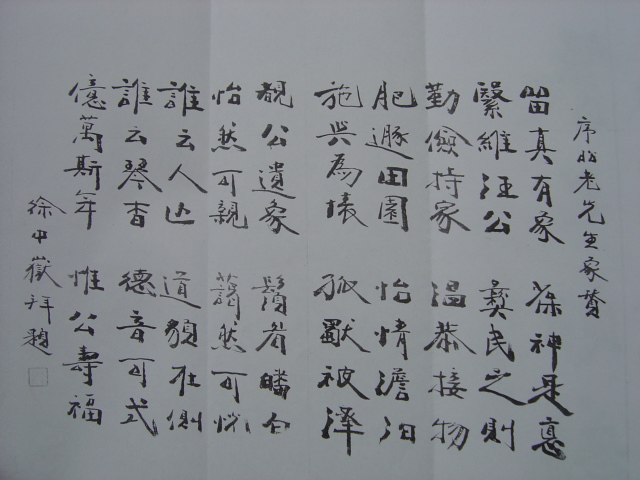 序八老先生象贊
留真有象 添神是意
繄維汪公 彝民之則
勤儉持家 溫恭接物
肥遯田園 怡情澹泊
施與為懷 孤嫠被澤
覩公遺象 鬚眉皤白
怡然可親 藹然可悅
誰云人亾 道貌在側
誰云琴杳 德音可式
億萬斯年 惟公壽福
徐中嶽拜題